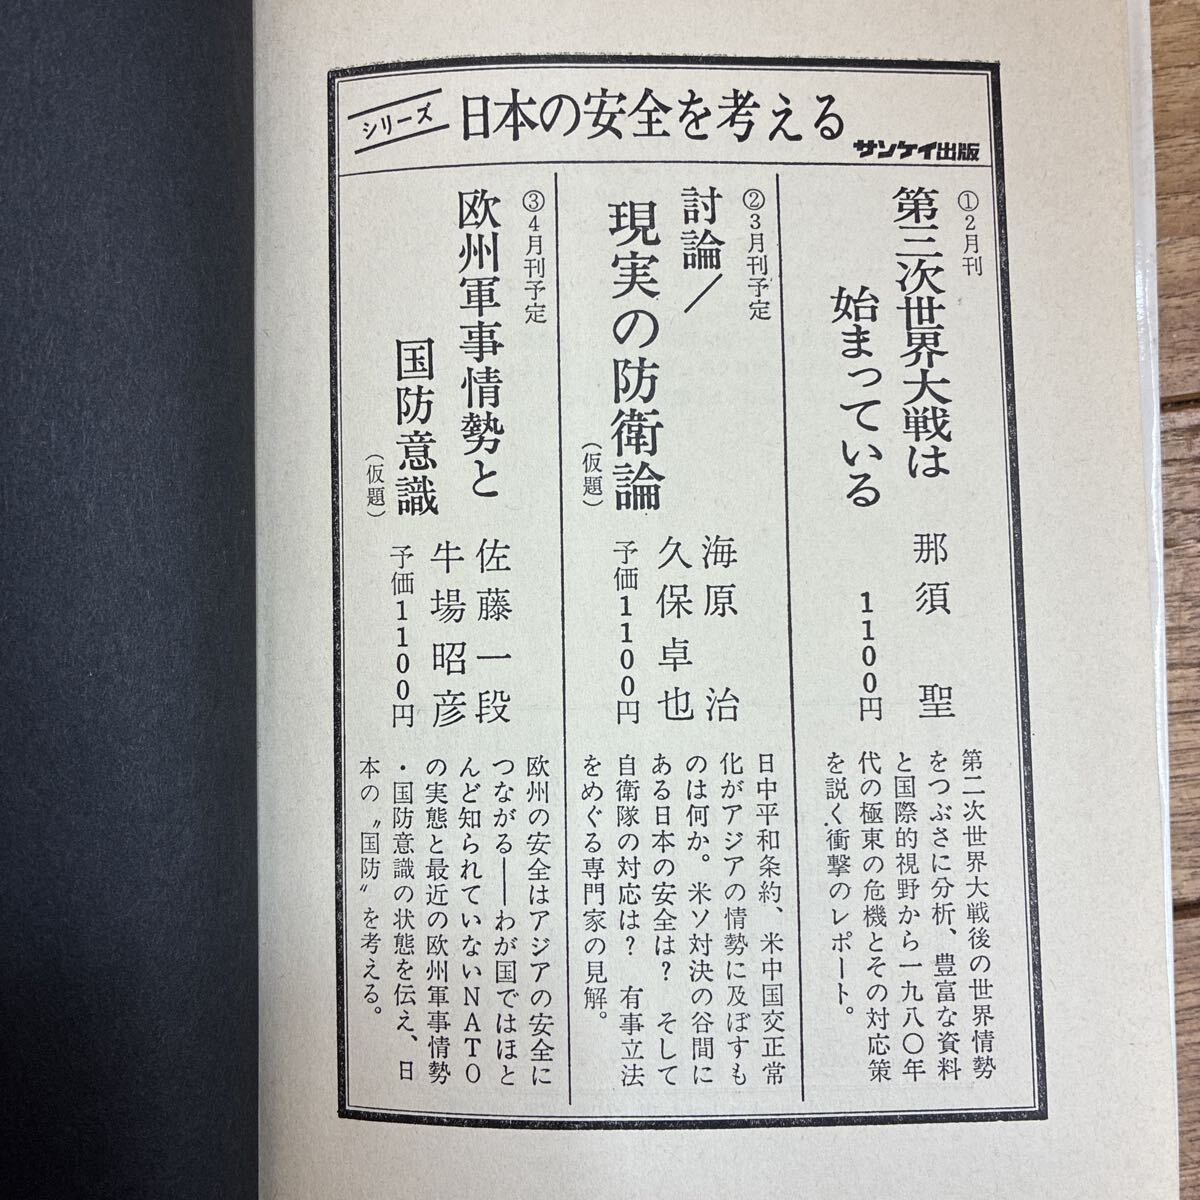 シリーズ
日本の安全を考える
サンケイ出版
①2月刊
第三次世界大戦は
始まっている
那須 聖
1100円
第二次世界大戦後の世界情勢
をつぶさに分析、豊富な資料
と国際的視野から一九八〇年
代の極東の危機とその対応策
を説く衝撃のレポート。
②3月刊予定
討論/
現実の防衛論
(仮題)
海原 治
久保卓也
予価1100円
日中平和条約、米中国交正常
化がアジアの情勢に及ぼすも
のは何か。米ソ対決の谷間に
ある日本の安全は? そして
自衛隊の対応は? 有事立法
をめぐる専門家の見解。
③4月刊予定
欧州軍事情勢と
国防意識
(仮題)
佐藤一段
牛場昭彦
予価1100円
欧州の安全はアジアの安全に
つながる——わが国ではほと
んど知られていないNATO
の実態と最近の欧州軍事情勢
・国防意識の状態を伝え、日
本の〝国防〟を考える。